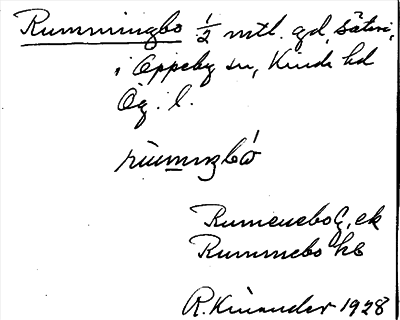 Rummingbo 1/2 mtl. gd, säteri,
i Oppeby sn, Kinds hd
Ög. l.
rùmıŋbó
Rumenebo G. ek
Rummebo hb
R. Kinander 1928